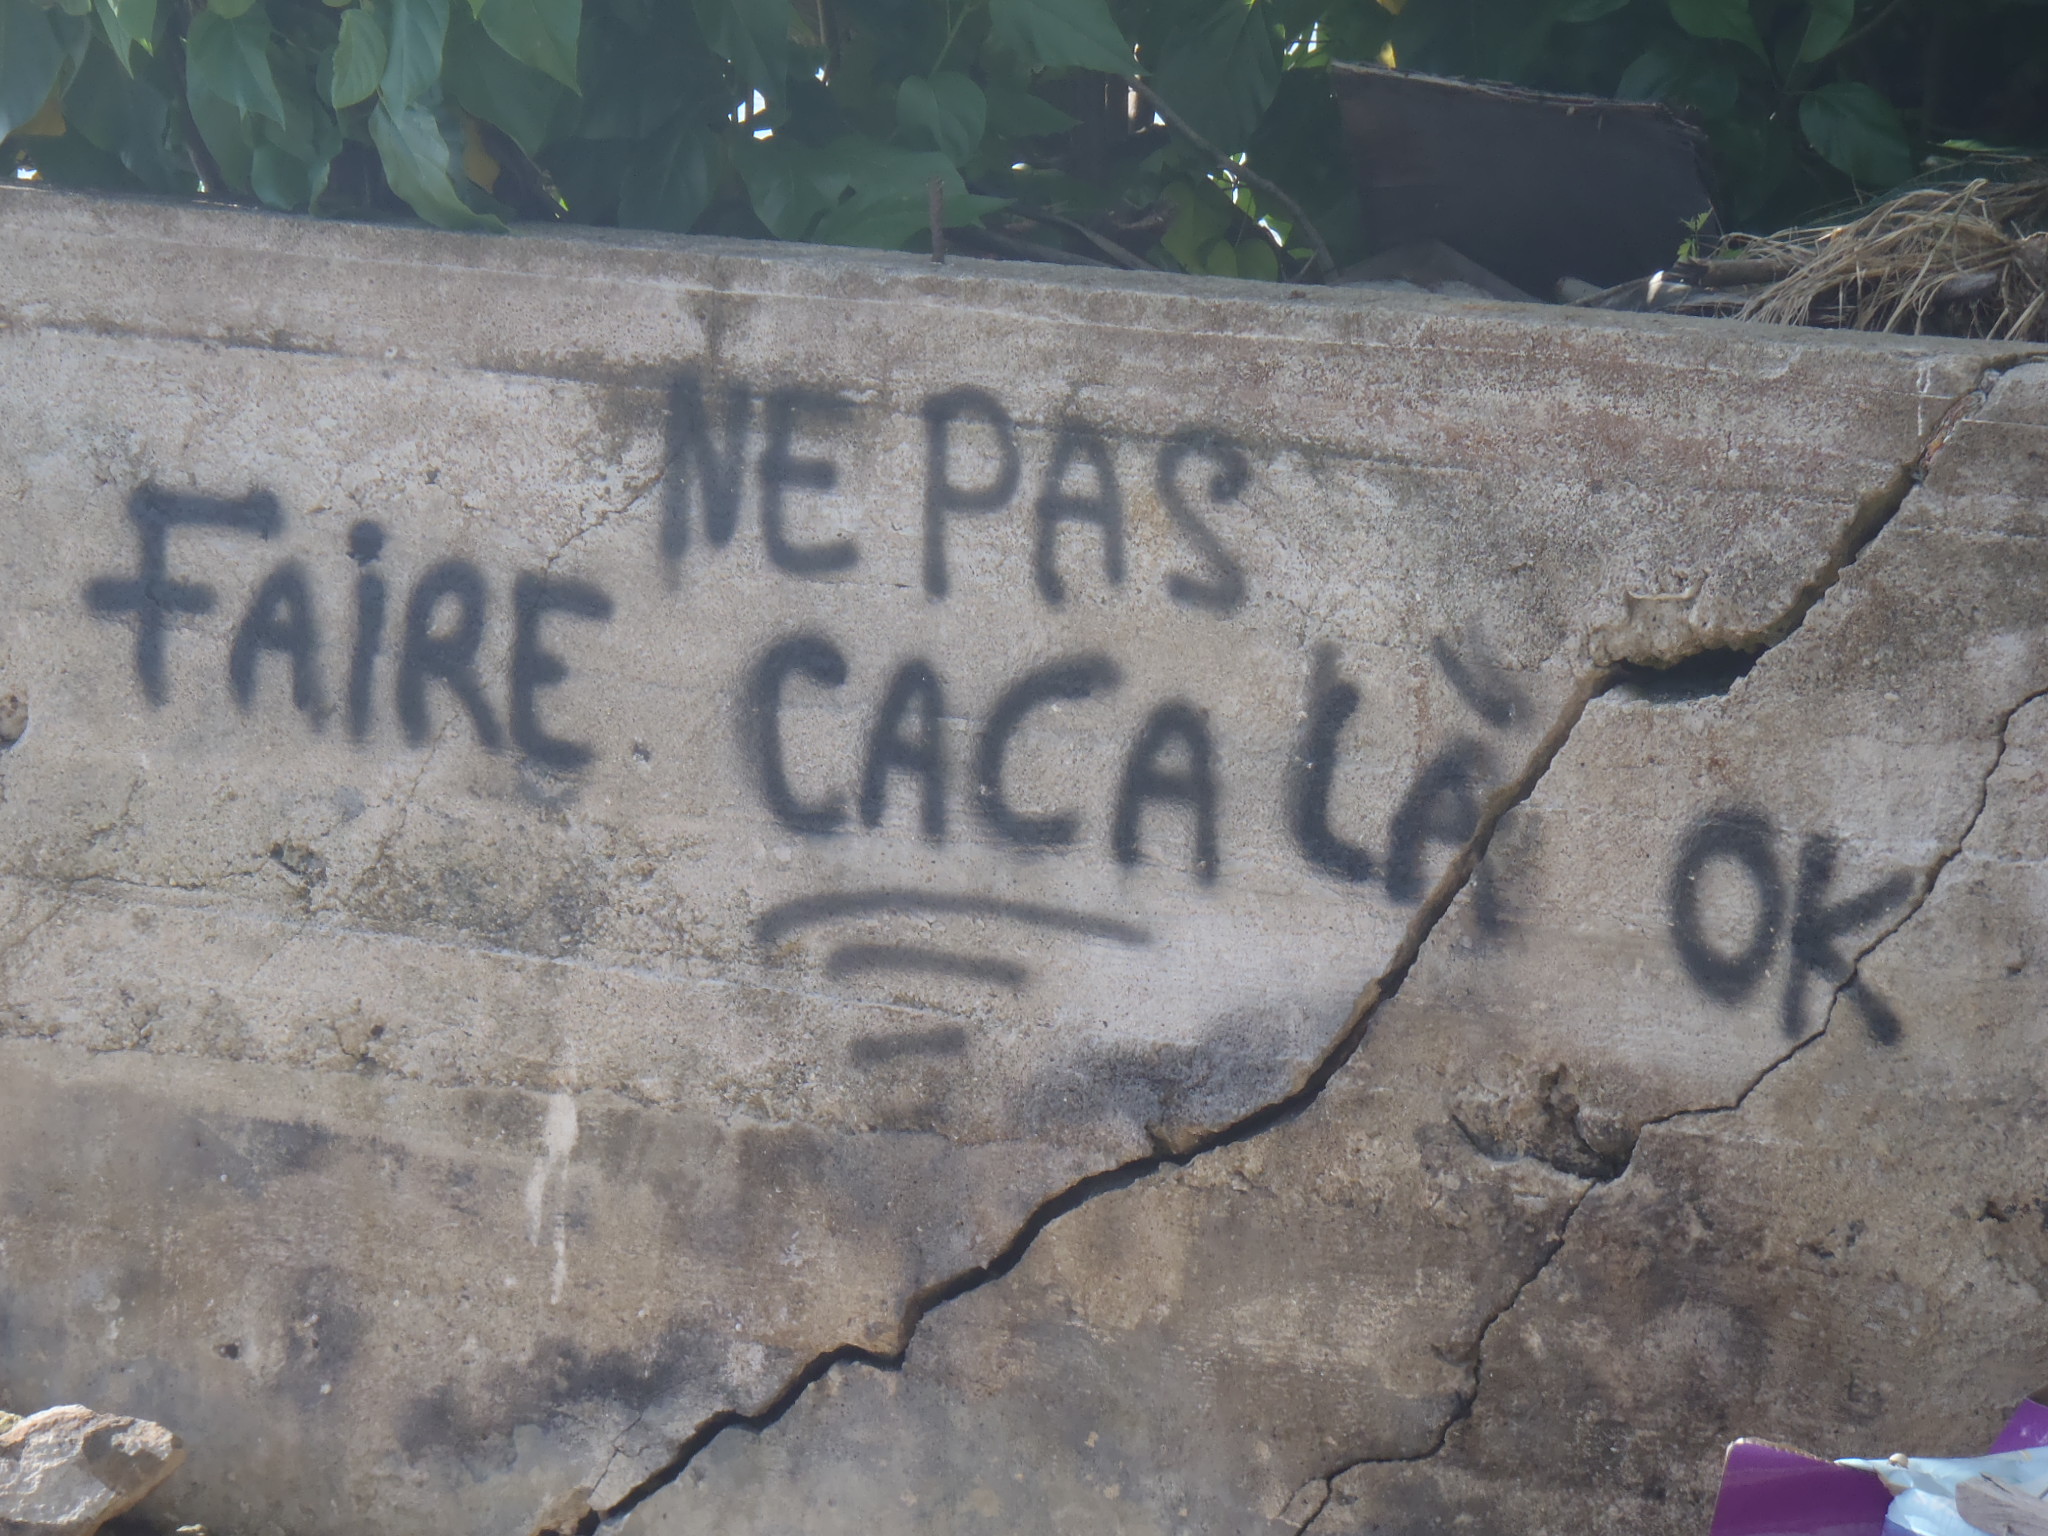 NE PAS
FAiRE CACA LÀ OK